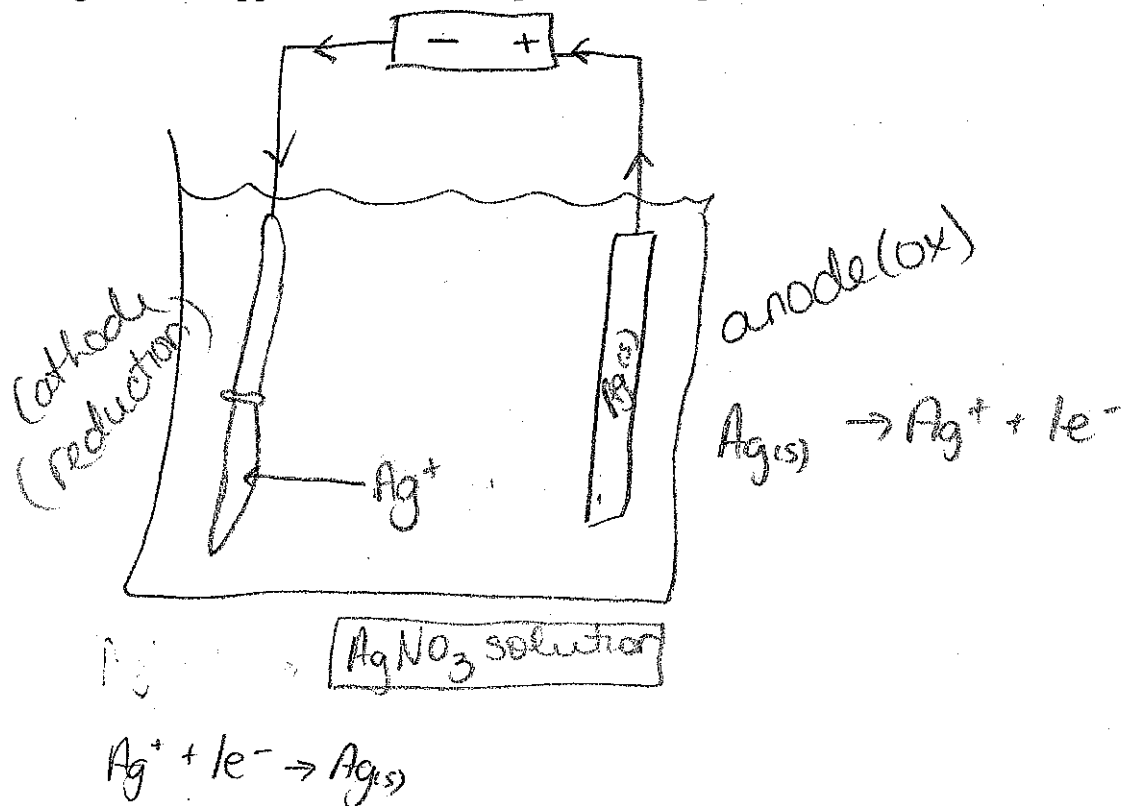 − +
Cathode
(reduction)
anode (ox)
Ag(s)
Ag(s) → Ag⁺ + 1e⁻
Ag⁺
AgNO₃ solution
Ag⁺ + 1e⁻ → Ag(s)